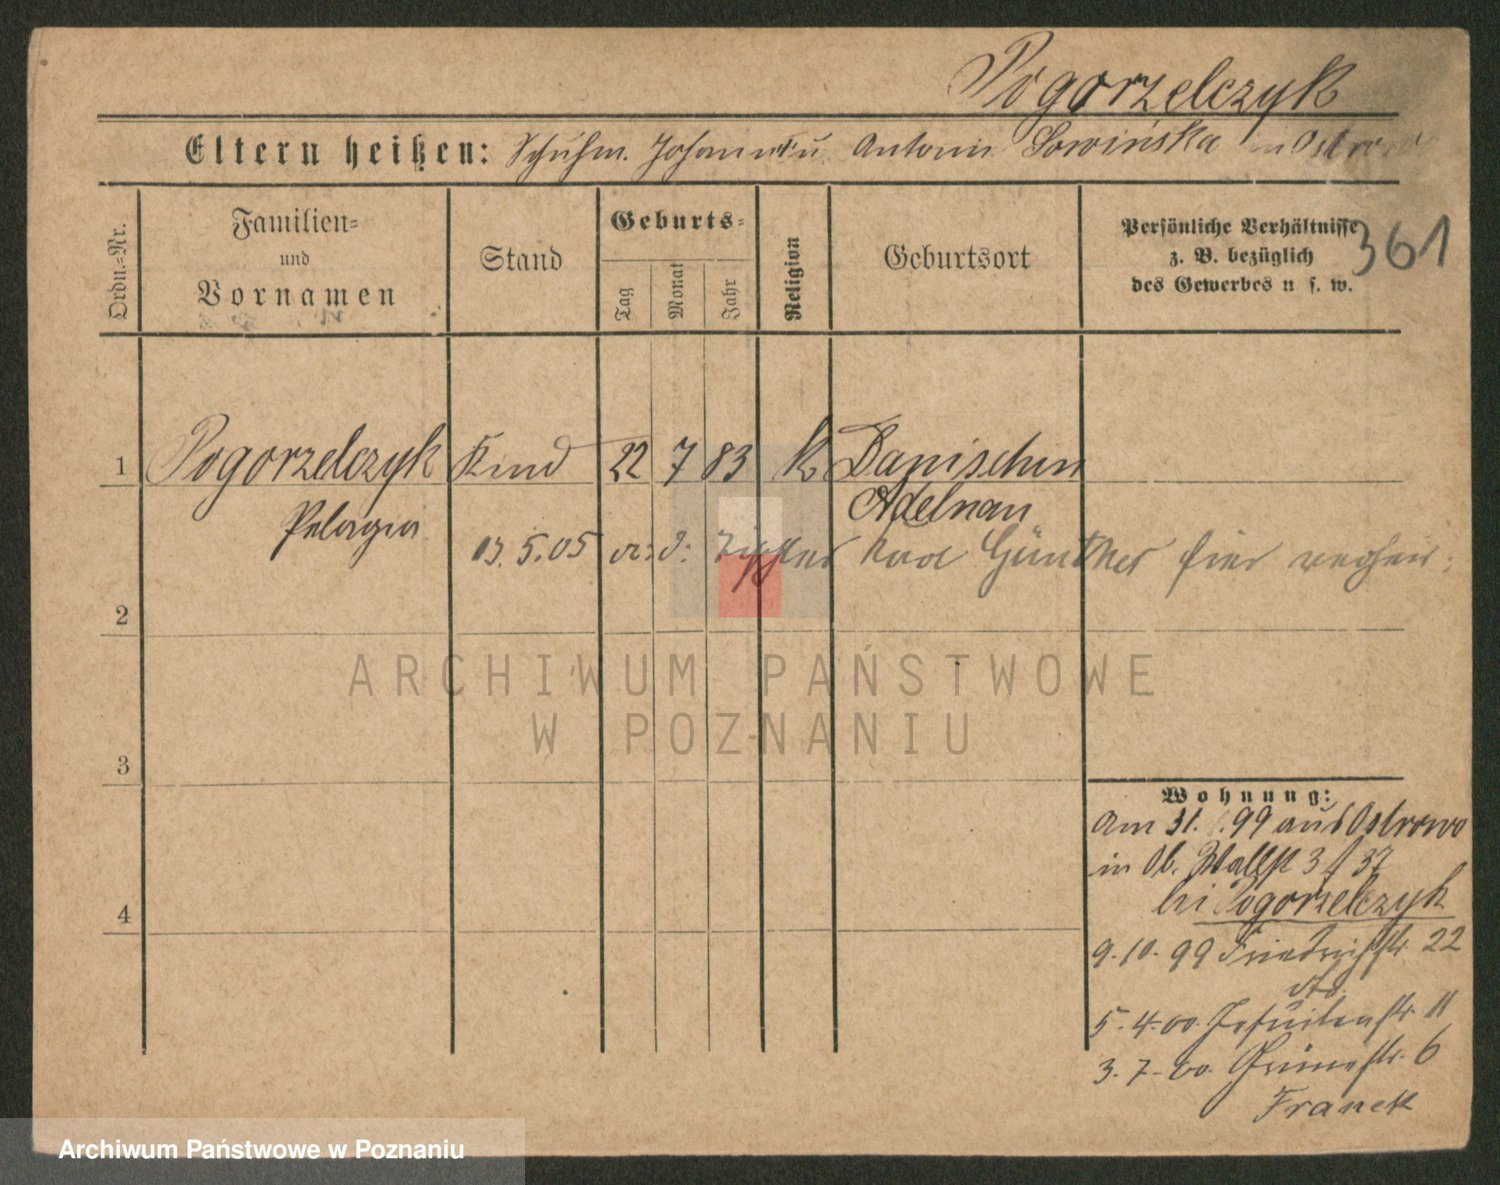 Pogorzelczyk
Eltern heißen: Schuhm. Johann u Antonie Sowińska in Ostrowo
Ordn.-Nr.
Familien-
und
Vornamen
Stand
Geburts-
Tag
Monat
Jahr
Religion
Geburtsort
Persönliche Verhältnisse
z. B. bezüglich
des Gewerbes u s. w.
361
1 Pogorzelczyk Kind 22 7 83 k Danischen
Pelagia Adelnau
5.05 Karl Günther hier
2
3
4
ARCHIWUM PAŃSTWOWE
W POZNANIU
Wohnung:
Am 31. 99 aus Ostrowo
in Ob. Wallst 3 f 37
bei Pogorzelczyk
9.10.99 Friedrichstr. 22
5.4.00 Jesuitenstr. 11
3.7.00 Grünestr. 6
Franck
Archiwum Państwowe w Poznaniu